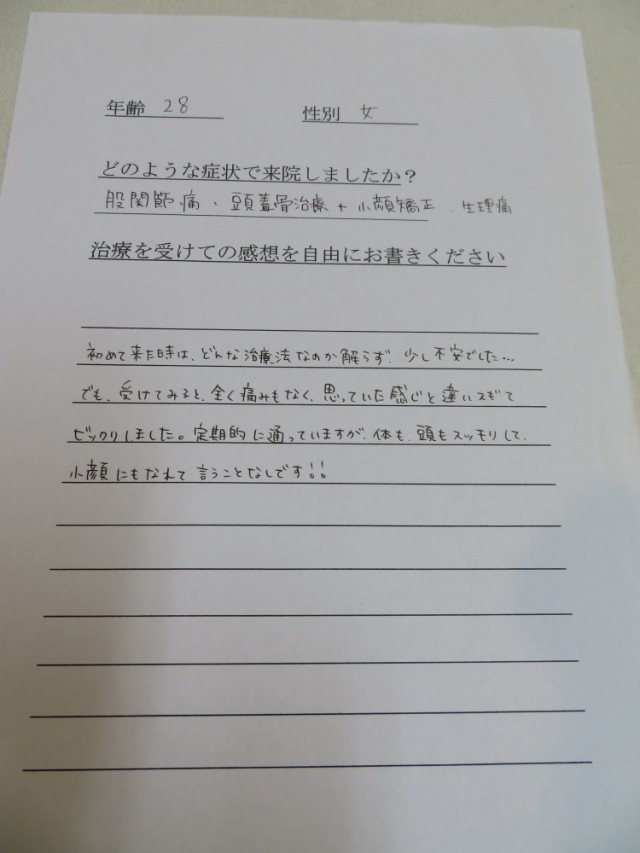 年齢 28 性別 女
どのような症状で来院しましたか?
股関節痛、頭蓋骨治療+小顔矯正、生理痛
治療を受けての感想を自由にお書きください
初めて来た時は、どんな治療法なのか解らず、少し不安でした…
でも、受けてみると、全く痛みもなく、思っていた感じと違いスギて
ビックリしました。定期的に通っていますが、体も、頭もスッキリして、
小顔にもなれて言うことなしです!!